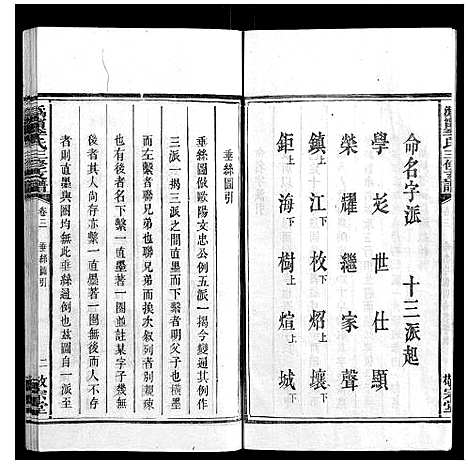 命名字派 十三派起
學彣世仕顯
榮耀繼家聲
鎮上江下枚上炤下壤上
鉅上海下樹上煊下城
氏三修支譜
敬宗堂
垂絲圖引
垂絲圖倣歐陽文忠公例五派一揭今變通其例作
三派一揭三派之間直墨而下者明父子也橫墨
而左繫者聯兄弟也聯兄弟以長次敘列者別親疎
也若其有名下繫一直墨著一圈並註某字子幾無
後者其人尚存亦繫一直墨著一圈無後而人不存
者則直墨與圈均無此垂絲通例也茲圖自一派至
氏三修支譜
卷三 垂絲圖引
二 敬宗堂